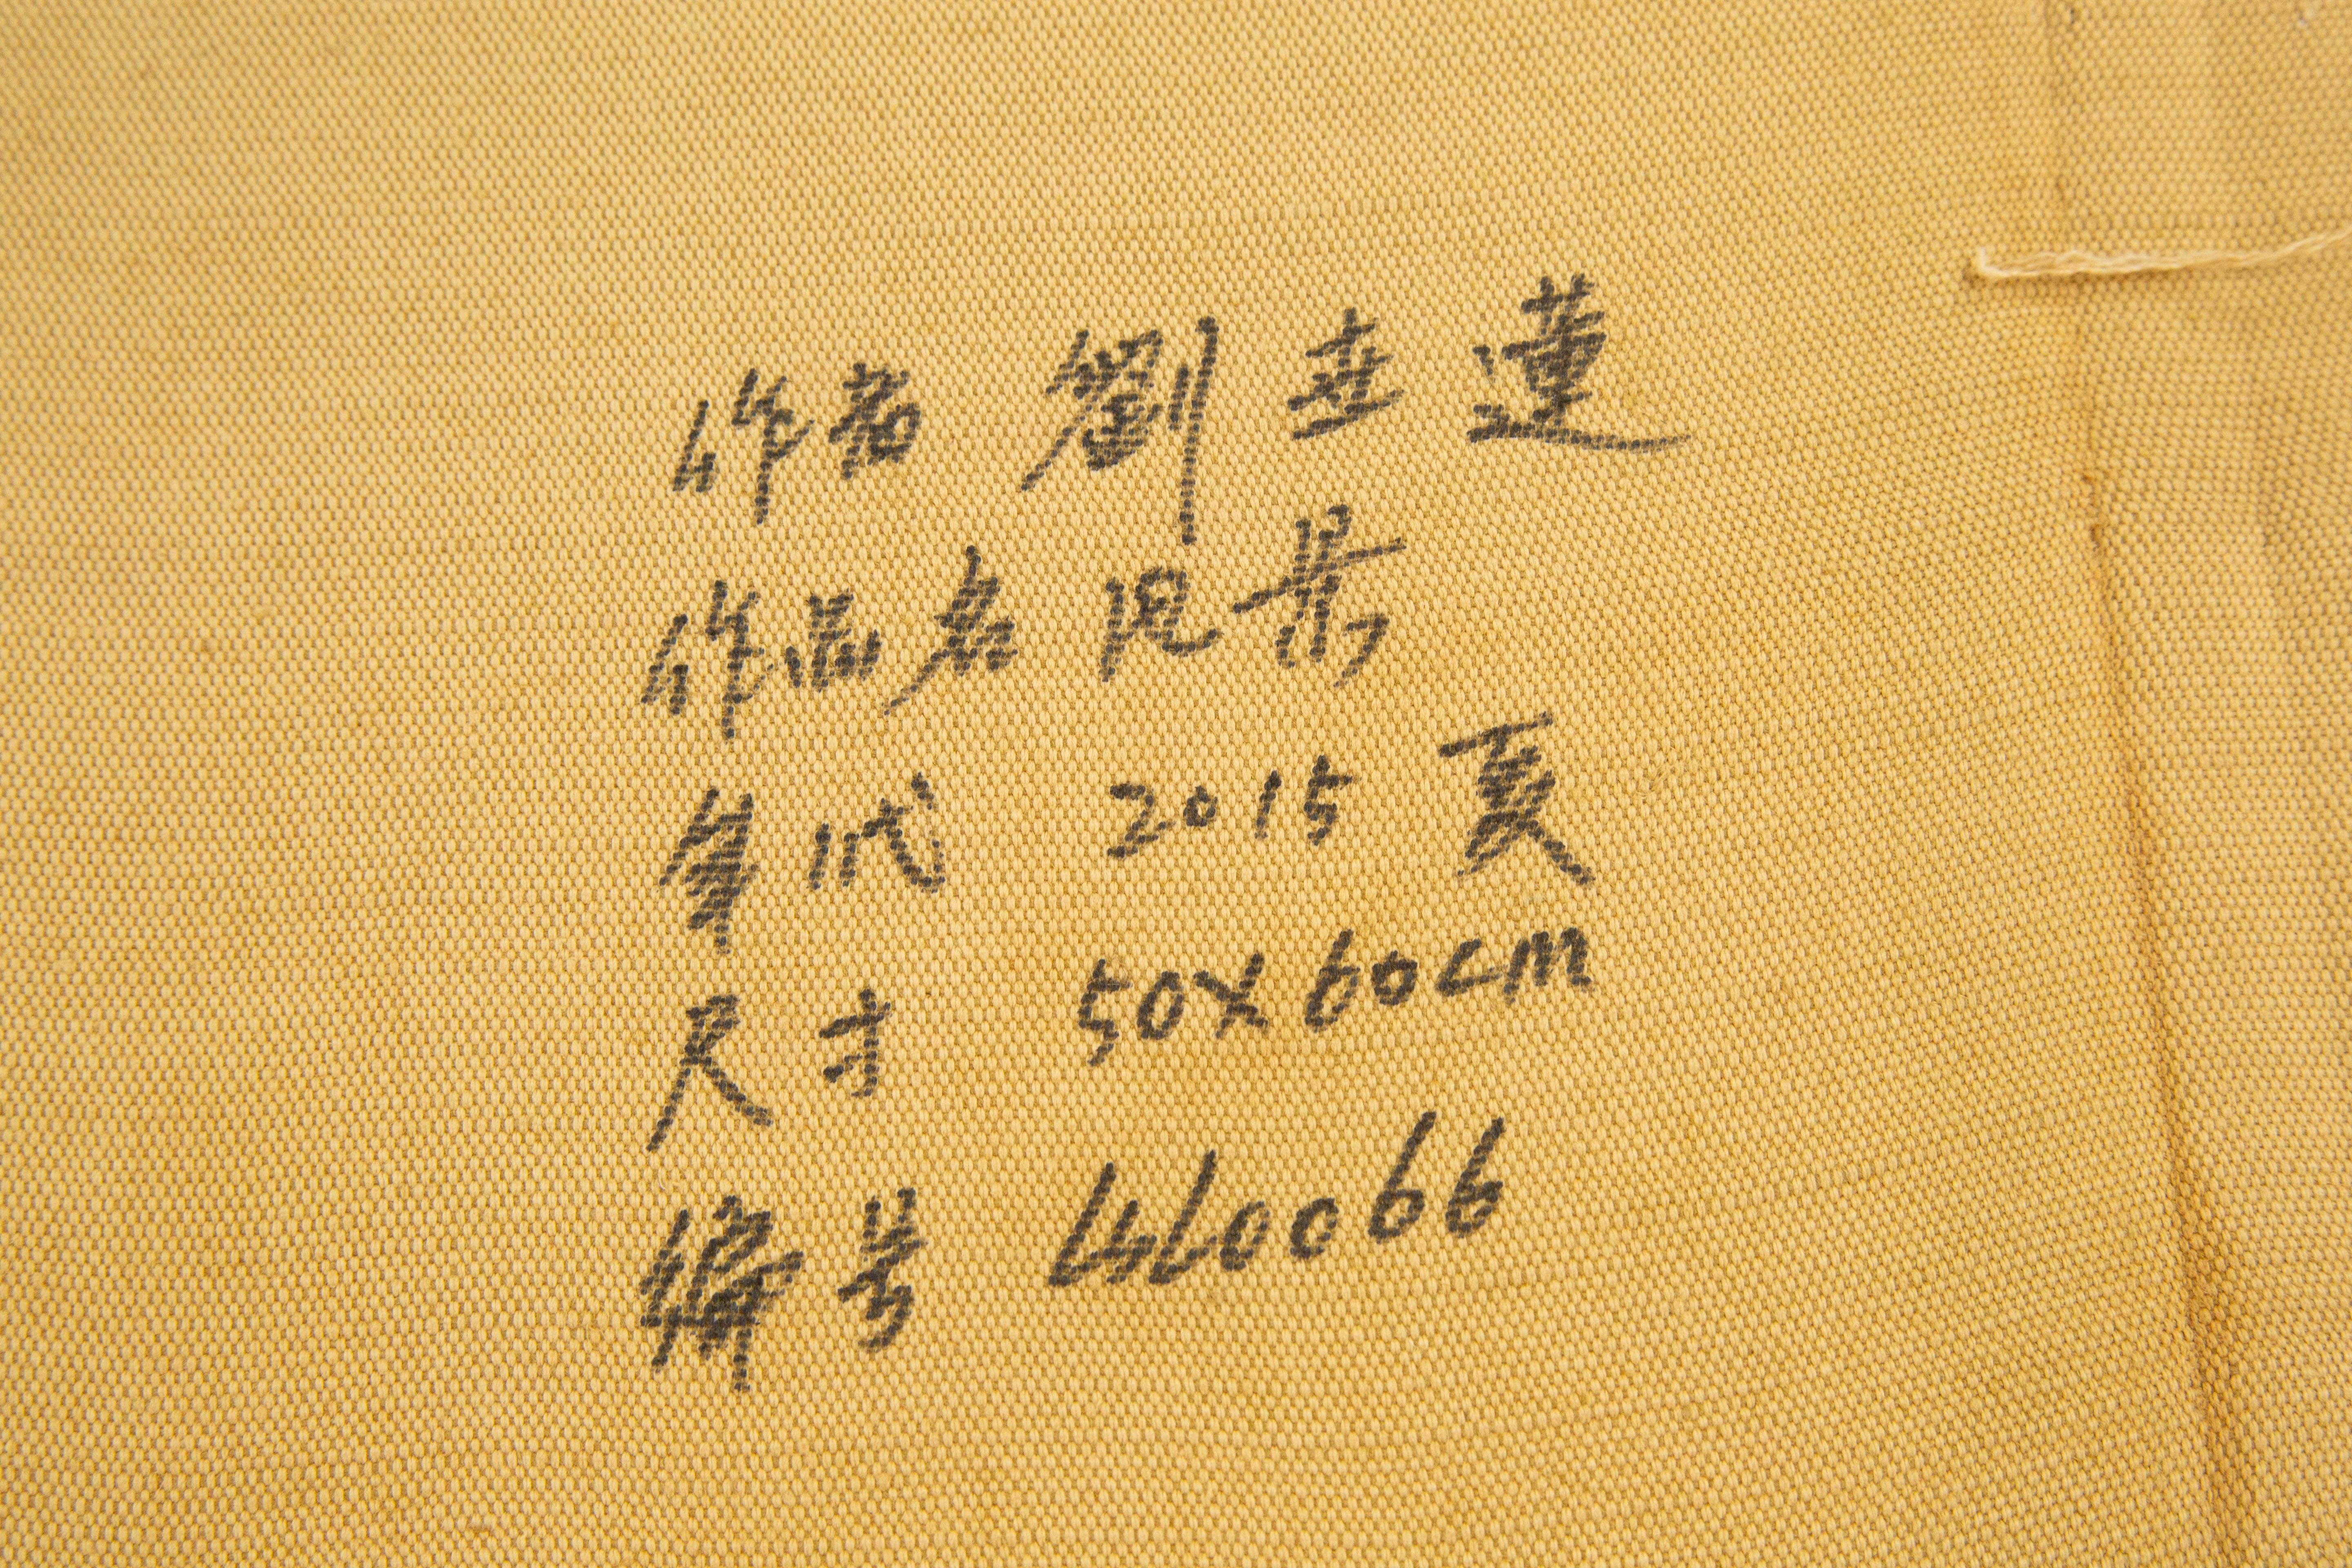 作者 劉 垂 蓮
作品名 风景
年代 2015 夏
尺寸 50X60cm
編号 LCL0066